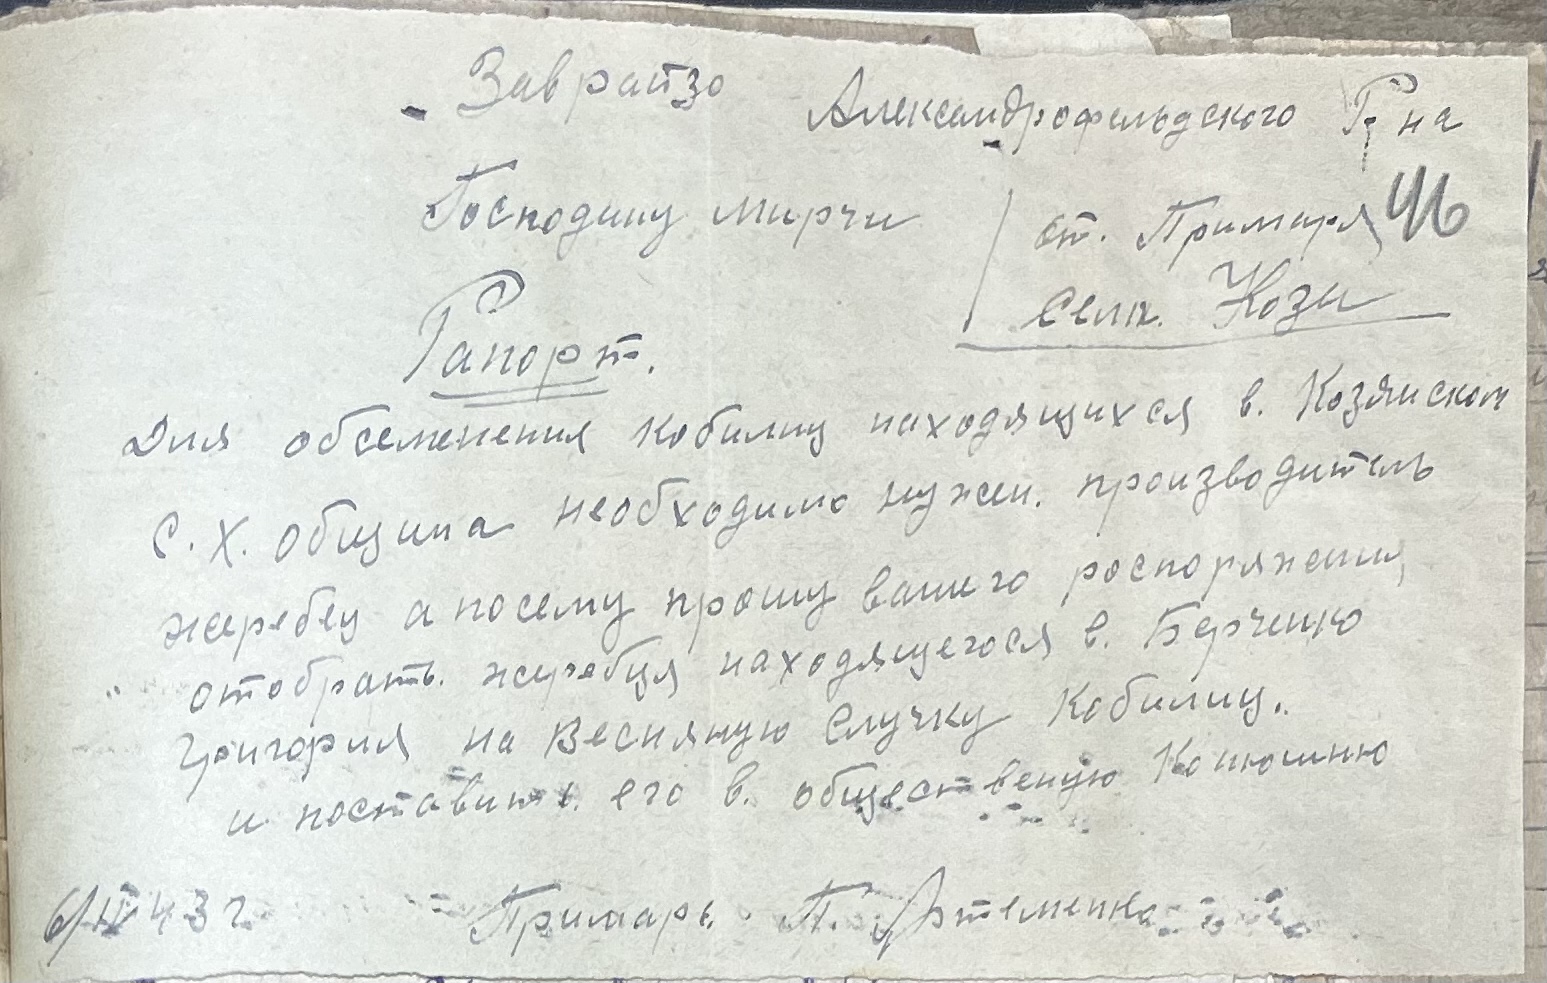 Заврайзо Александрофельдского Р-на
Господину Мирчи
от. Примаря 46
села. Кози
Рапорт.
Для обсеменения кобилиц находящихся в. Козянском
С.Х. община необходимо нужен. производитель
жеребец а посему прошу вашего роспоряжения
отобрать. жеребца находящегося в. Берченко
Григория на Весняную Случку Кобилиц.
и поставить его в. общественую Конюшню
6/II 43 г Примарь. П. Артеменко